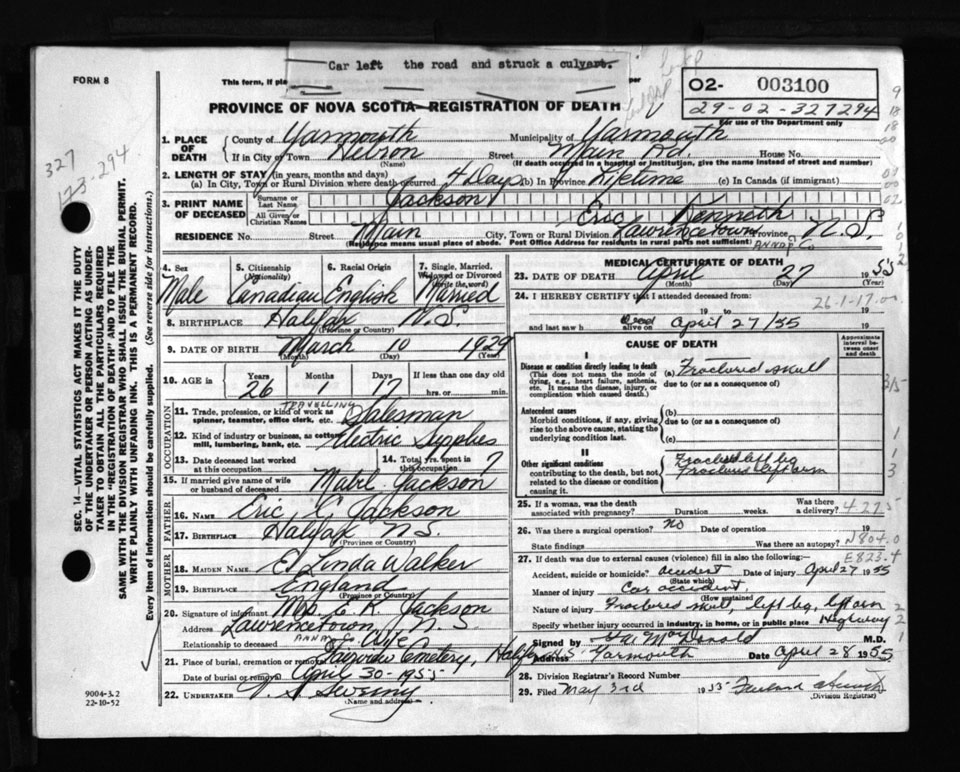 Car left the road and struck a culvert.
FORM 8
This form, if pla per
O2- 003100
29-02-327294
For use of the Department only
PROVINCE OF NOVA SCOTIA—REGISTRATION OF DEATH
327
123-294
1. PLACE OF DEATH { County of Yarmouth Municipality of Yarmouth
If in City or Town Hebron Street Main Rd. House No.
(Name) (If death occurred in a hospital or institution, give the name instead of street and number)
2. LENGTH OF STAY (in years, months and days)
(a) In City, Town or Rural Division where death occurred 4 Days (b) in Province Lifetime (c) In Canada (if immigrant)
3. PRINT NAME OF DECEASED { Surname or Last Name Jackson
All Given or Christian Names Eric Kenneth
RESIDENCE No. Street Main City, Town or Village Lawrencetown Province N.S.
(Residence means usual place of abode. Post Office Address for residents in rural parts not sufficient) ANNAP Co.
4. Sex Male
5. Citizenship (Nationality) Canadian
6. Racial Origin English
7. Single, Married, Widowed or Divorced (write the word) Married
8. BIRTHPLACE Halifax N.S.
(Province or Country)
9. DATE OF BIRTH March 10 1929
(Month) (Day) (Year)
10. AGE in { Years Months Days If less than one day old
26 1 17 hrs. or min.
OCCUPATION
TRAVELLING
11. Trade, profession, or kind of work as spinner, teamster, office clerk, etc. Salesman
12. Kind of industry or business, as cotton mill, lumbering, bank, etc. Electric Supplies
13. Date deceased last worked at this occupation
14. Total yrs. spent in this occupation 7
15. If married give name of wife or husband of deceased Mabel Jackson
FATHER
16. NAME Eric C. Jackson
17. BIRTHPLACE Halifax N.S.
(Province or Country)
MOTHER
18. MAIDEN NAME E. Linda Walker
19. BIRTHPLACE England
(Province or Country)
20. Signature of informant Mrs. E. K. Jackson
Address Lawrencetown, N.S.
ANNAP Co.
Relationship to deceased Wife
21. Place of burial, cremation or removal Fairview Cemetery, Halifax N.S.
Date of burial or removal April 30 - 1955
22. UNDERTAKER Sweeny
(Name and address)
MEDICAL CERTIFICATE OF DEATH
23. DATE OF DEATH April 27 1955
(Month) (Day) (Year)
24. I HEREBY CERTIFY that I attended deceased from:
26-1-17.
19 to 19
and last saw h alive on Dead April 27/55
CAUSE OF DEATH
Approximate interval between onset and death
I
Disease or condition directly leading to death
(This does not mean the mode of dying, e.g., heart failure, asthenia, etc. It means the disease, injury, or complication which caused death.)
(a) Fractured skull
due to (or as a consequence of)
Antecedent causes
Morbid conditions, if any, giving rise to the above cause, stating the underlying condition last.
(b)
due to (or as a consequence of)
(c)
II
Other significant conditions
contributing to the death, but not related to the disease or condition causing it.
Fractured left leg
Fractured left arm
25. If a woman, was the death associated with pregnancy? Duration weeks. Was there a delivery?
26. Was there a surgical operation? No Date of operation 19
State findings Was there an autopsy?
N804.0
E823.4
27. If death was due to external causes (violence) fill in also the following:—
Accident, suicide or homicide? accident Date of injury April 27 1955
(State which)
Manner of injury Car accident
(How sustained)
Nature of injury Fractured skull, left leg, left arm
Specify whether injury occurred in industry, in home, or in public place Highway
Signed by McDonald M.D.
Address Yarmouth Date April 28 1955
28. Division Registrar's Record Number
29. Filed May 3rd 1955
(Division Registrar)
SEC. 14—VITAL STATISTICS ACT MAKES IT THE DUTY
OF THE UNDERTAKER OR PERSON ACTING AS UNDER-
TAKER TO OBTAIN ALL THE PARTICULARS REQUIRED
IN THE "REGISTRATION OF DEATH" AND TO FILE THE
SAME WITH THE DIVISION REGISTRAR WHO SHALL ISSUE THE BURIAL PERMIT.
WRITE PLAINLY WITH UNFADING INK. THIS IS A PERMANENT RECORD.
Every item of information should be carefully supplied. (See reverse side for instructions.)
9004-3.2
22-10-52